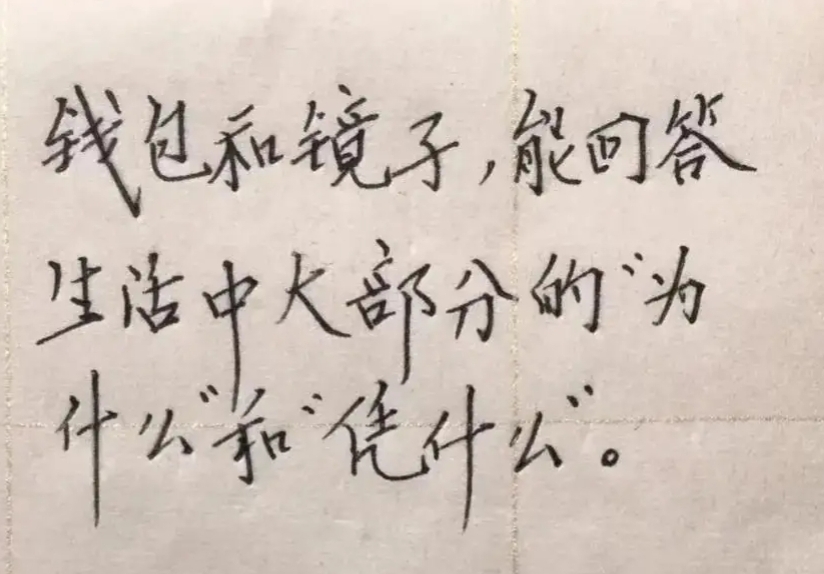 钱包和镜子,能回答
生活中大部分的“为
什么”和“凭什么”。